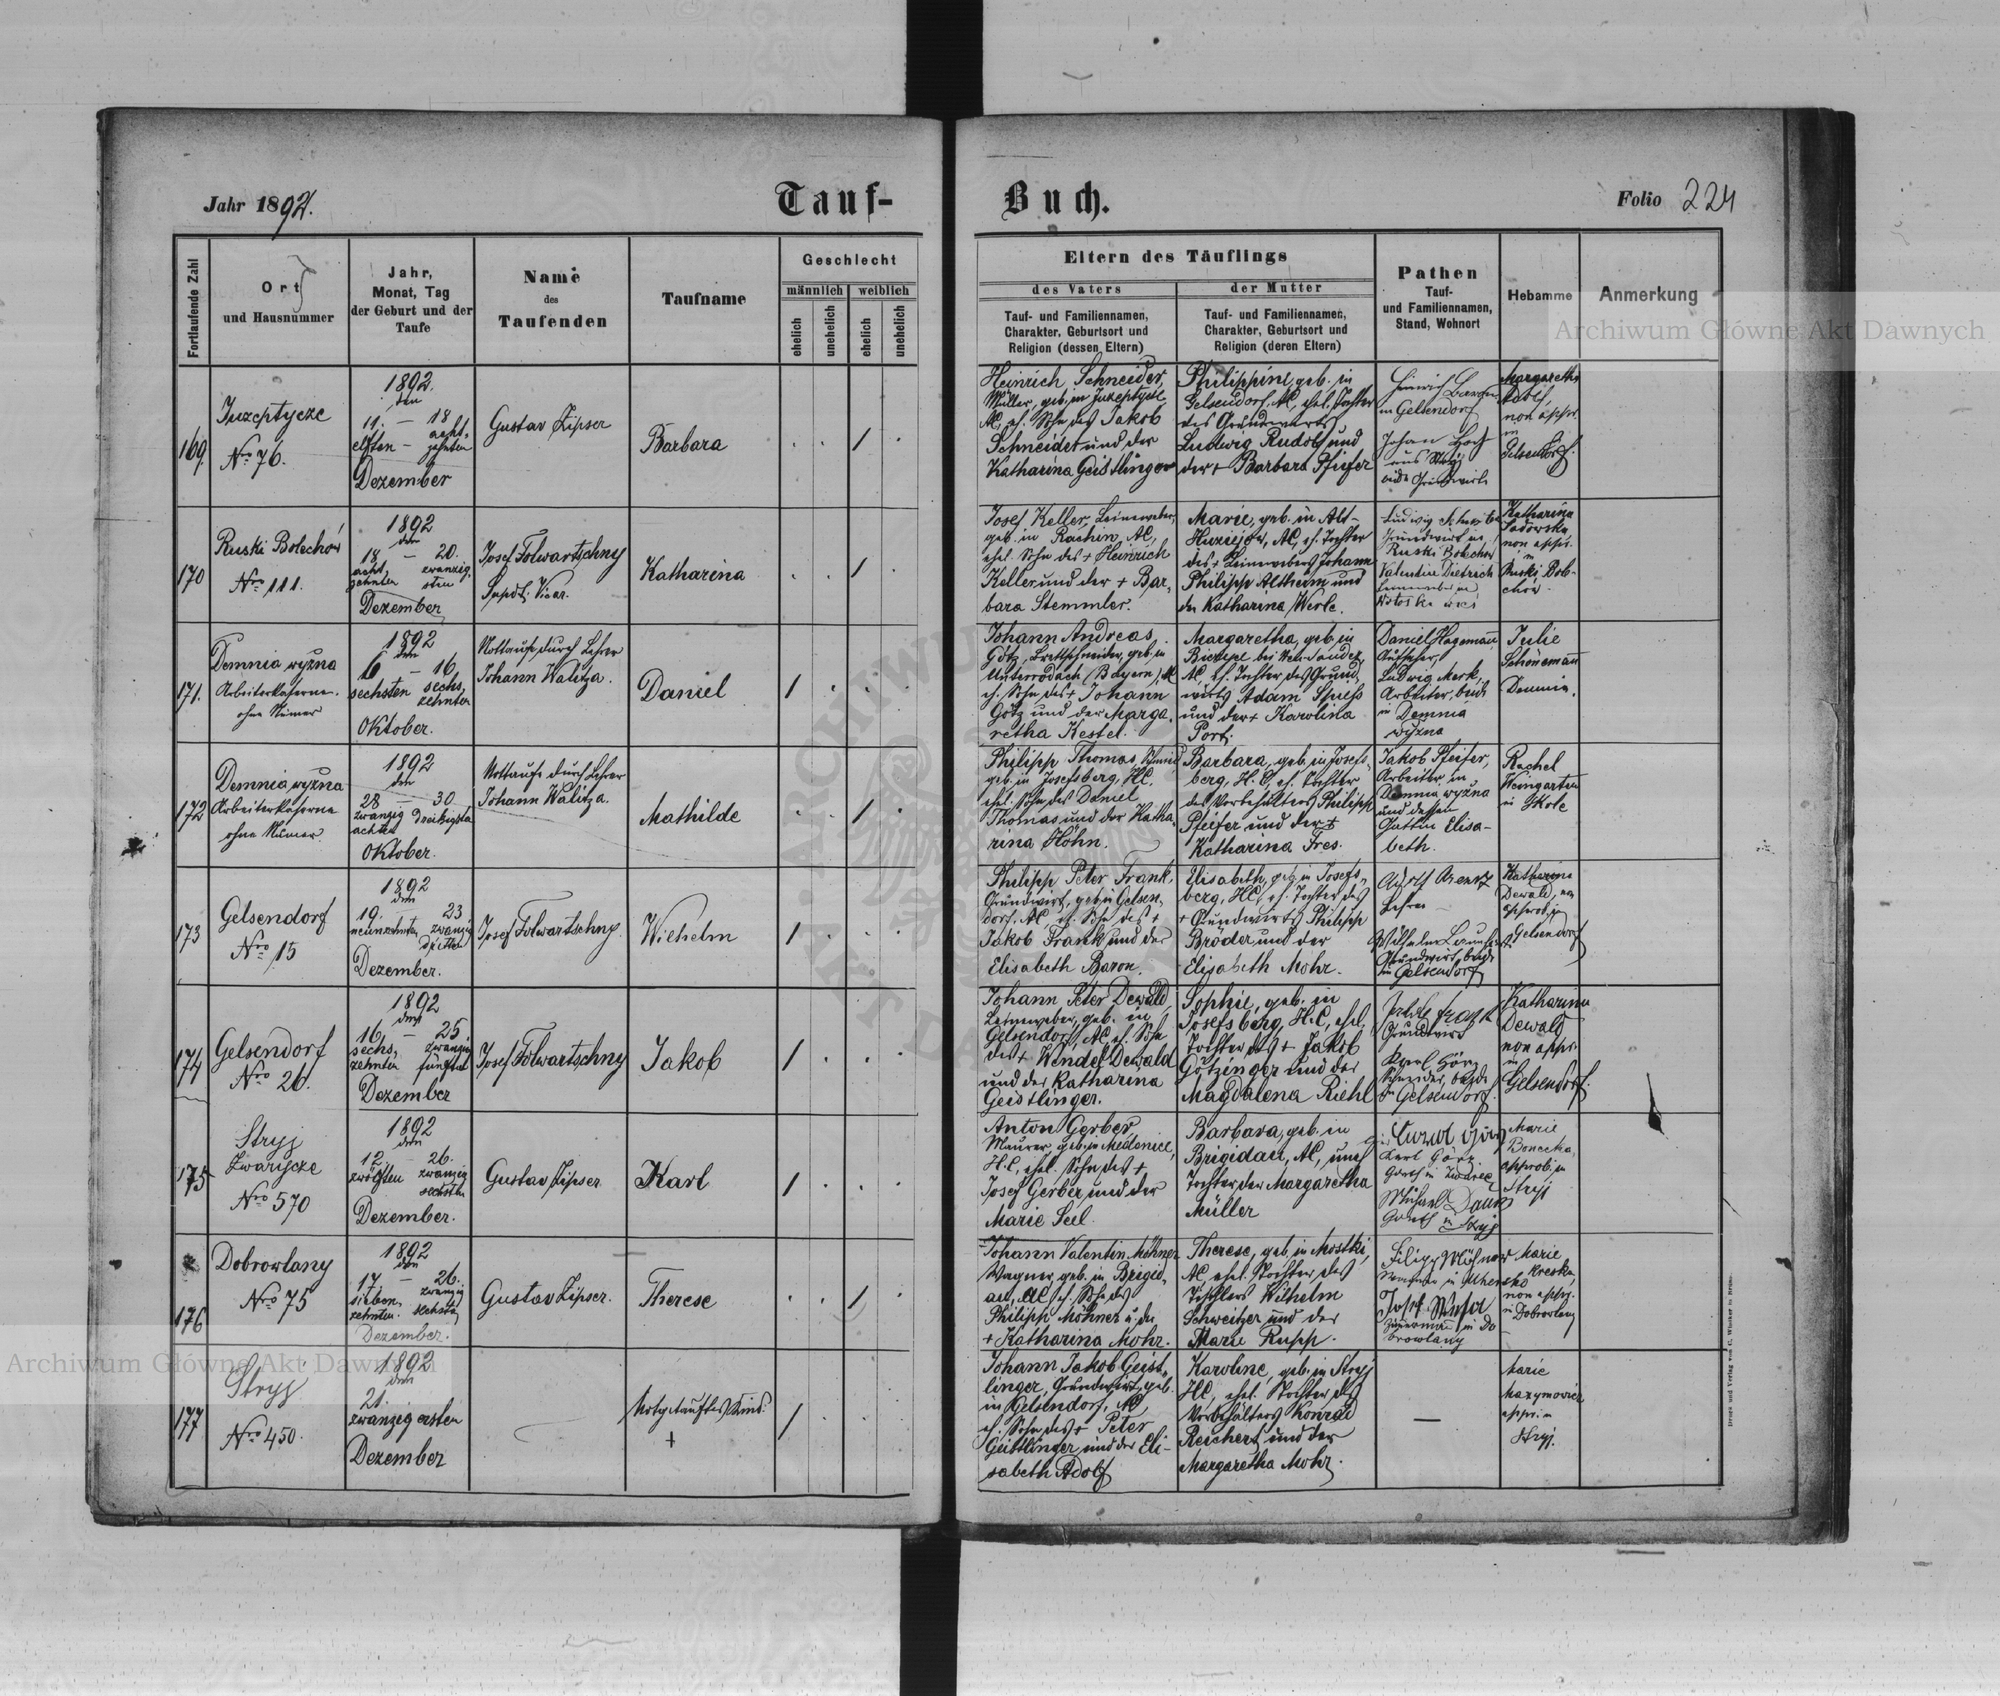 Jahr 1892.
Tauf-
Buch.
Folio 224
Fortlaufende Zahl
Ort
und Hausnummer
Jahr,
Monat, Tag
der Geburt und der
Taufe
Name
des
Taufenden
Taufname
Geschlecht
männlich
weiblich
ehelich
unehelich
ehelich
unehelich
Eltern des Täuflings
des Vaters
Tauf- und Familiennamen,
Charakter, Geburtsort und
Religion (dessen Eltern)
der Mutter
Tauf- und Familiennamen,
Charakter, Geburtsort und
Religion (deren Eltern)
Pathen
Tauf-
und Familiennamen,
Stand, Wohnort
Hebamme
Anmerkung
169.
Juzeptycze
Nro 76.
1892.
den
11. — 18
elften — acht-
zehnten
Dezember
Gustav Zipser
Barbara
Heinrich Schneider,
Müller, geb. in Juzeptycze
AC, eh. Sohn des Jakob
Schneider und der
Katharina Geistlinger
Philippine, geb. in
Gelsendorf, AC, ehel. Tochter
des Grundwirts
Ludwig Rudolf und
der + Barbara Pfeifer
Heinrich Baron
in Gelsendorf
Johan
aus
beide Grundwirte
Margaretha
Adolf,
non appr.
in
Gelsendorf.
170
Ruski Bolechów
Nro 111.
1892
den
18 — 20.
acht- zwanzig-
zehnten sten
Dezember
Josef Folwartschny
Supdt. Vicar.
Katharina
Josef Keller, Leineweber,
geb. in Rachin, AC,
ehel. Sohn des + Heinrich
Keller und der + Bar-
bara Stemmler.
Marie, geb. in Alt-
AC, eh. Tochter
des + Leinewebers Johann
Philipp Altheim und
der Katharina Werle.
Ludwig
Grundwirt in
Ruski Bolechów
Valentin Dietrich
Leineweber in
Katharina
Sadowska
non appr.
in
Ruski Bole-
chów.
171.
Demnia wyżna
Arbeiterkaserne
ohne Numer
1892
den
6 — 16.
sechsten sech-
zehnten
Oktober.
Nottaufe durch Lehrer
Johann Walitza.
Daniel
Johann Andreas
Götz, Brettschneider, geb. in
Unterrodach (Bayern), AC
eh. Sohn des + Johann
Götz und der Marga-
retha Kestel.
Margaretha, geb. in
Biczyce bei Neu-Sandez,
AC, eh. Tochter des Grund-
wirts Adam Spiess
und der + Karolina
Port.
Daniel Hagemann,
Kutscher,
Ludwig Merk,
Arbeiter, beide
in Demnia
wyżna
Julie
Schönemann
Demnia.
172
Demnia wyżna
Arbeiterkaserne
ohne Numer
1892
den
28 — 30
zwanzig dreißigsten
achten
Oktober.
Nottaufe durch Lehrer
Johann Walitza.
Mathilde
Philipp Thomas, Schmied
geb. in Josefsberg, HC.
ehel. Sohn des Daniel
Thomas und der Katha-
rina Höhn.
Barbara, geb. in Josefs-
berg, H.C, eh. Tochter
des Vorbehälters Philipp
Pfeifer und der +
Katharina Fres.
Jakob Pfeifer,
Arbeiter in
Demnia wyżna
und dessen
Gattin Elisa-
beth.
Rachel
Weingarten
in Skole
173
Gelsendorf
Nro 15
1892
den
19. 23
neunzehnten zwanzig
dritten
Dezember.
Josef Folwartschny.
Wilhelm
Philipp Peter Frank,
Grundwirt, geb. in Gelsen-
dorf, AC, eh. Sohn des +
Jakob Frank und der
Elisabeth Baron.
Elisabeth, geb. in Josefs-
berg, HC, eh. Tochter des
+ Grundwirts Philipp
Bröder und der
Elisabeth Mohr.
Lehrer
Wilhelm
Grundwirt, beide
in Gelsendorf
Katharina
Dewald, non
approb. in
Gelsendorf
174
Gelsendorf
Nro 26.
1892
den
16 — 25
sech- zwanzig
zehnten fünften
Dezember
Josef Folwartschny
Jakob
Johann Peter Dewald
Leineweber, geb. in
Gelsendorf, AC, eh. Sohn
des + Wendel Dewald
und der Katharina
Geistlinger.
Sophie, geb. in
Josefsberg, H.C, ehel.
Tochter des + Jakob
Götzinger und der
Magdalena Riehl
Jakob Frank
Grundwirt
Karl Görz
Schneider, beide
in Gelsendorf.
Katharina
Dewald
non appr.
in
Gelsendorf.
175
Stryj
Zwarycze
Nro 570
1892
den
12 — 26.
zwölften zwanzig
sechsten
Dezember.
Gustav Zipser
Karl
Anton Gerber
Maurer, geb. in Medenice,
H.C, ehel. Sohn des +
Josef Gerber und der
Marie Seel.
Barbara, geb. in
Brigidau, AC, uneh.
Tochter der Margaretha
Müller
Karl Görz
Michael
in Stryj
Marie
approb. in
Stryj
176
Dobrowlany
Nro 75
1892
den
17. — 26.
sieben- zwanzig
zehnten sechsten
Dezember.
Gustav Zipser.
Therese
Johann Valentin Möhner
Wagner, geb. in Brigid-
au, AC, eh. Sohn des
Philipp Möhner u. der
+ Katharina Mohr.
Therese, geb. in Mostki,
AC, ehel. Tochter des
Tischlers Wilhelm
Schweitzer und der
Marie Rupp.
Filipp Möhner
Wagner in Uhersko
Josef
Zimmermann in Do-
browlany
Marie
Kreska,
non appr.
in Dobrowlany
177
Stryj
Nro 450.
1892
den
21.
zwanzig ersten
Dezember
Notgetauftes Kind.
+
Johann Jakob Geist-
linger, Grundwirt, geb.
in Gelsendorf, AC,
eh. Sohn des + Peter
Geistlinger und der Eli-
sabeth Adolf
Karoline, geb. in Stryj
HC, ehel. Tochter des
Vorbehälters Konrad
Reichert und der
Margaretha Mohr.
—
Marie
Maxymowicz
appr. in
Stryj.
Druck und Verlag von C. Winiker in Brünn.
Archiwum Główne Akt Dawnych
Archiwum Główne Akt Dawnych